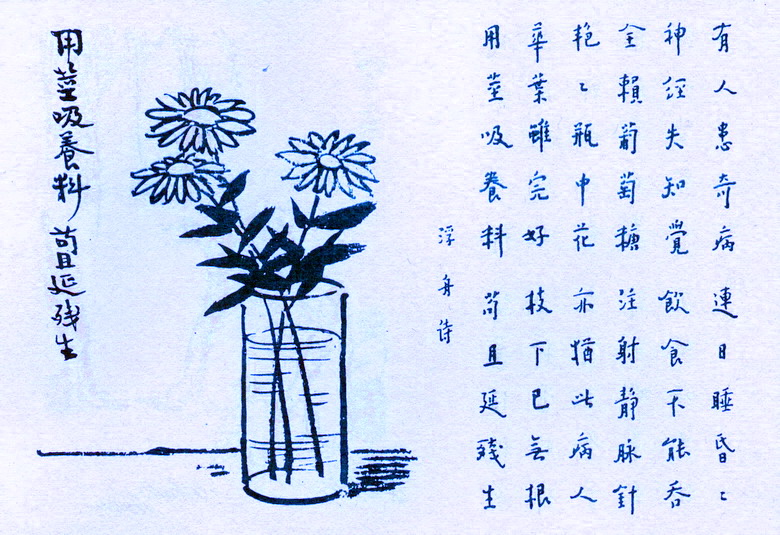 有人患奇病 連日睡昏々
神經失知覺 飲食不能吞
全賴葡萄糖 注射靜脈針
艳々瓶中花 亦猶此病人
華葉雖完好 枝下已無根
用莖吸養料 苟且延殘生
浮舟詩
用莖吸養料 苟且延殘生